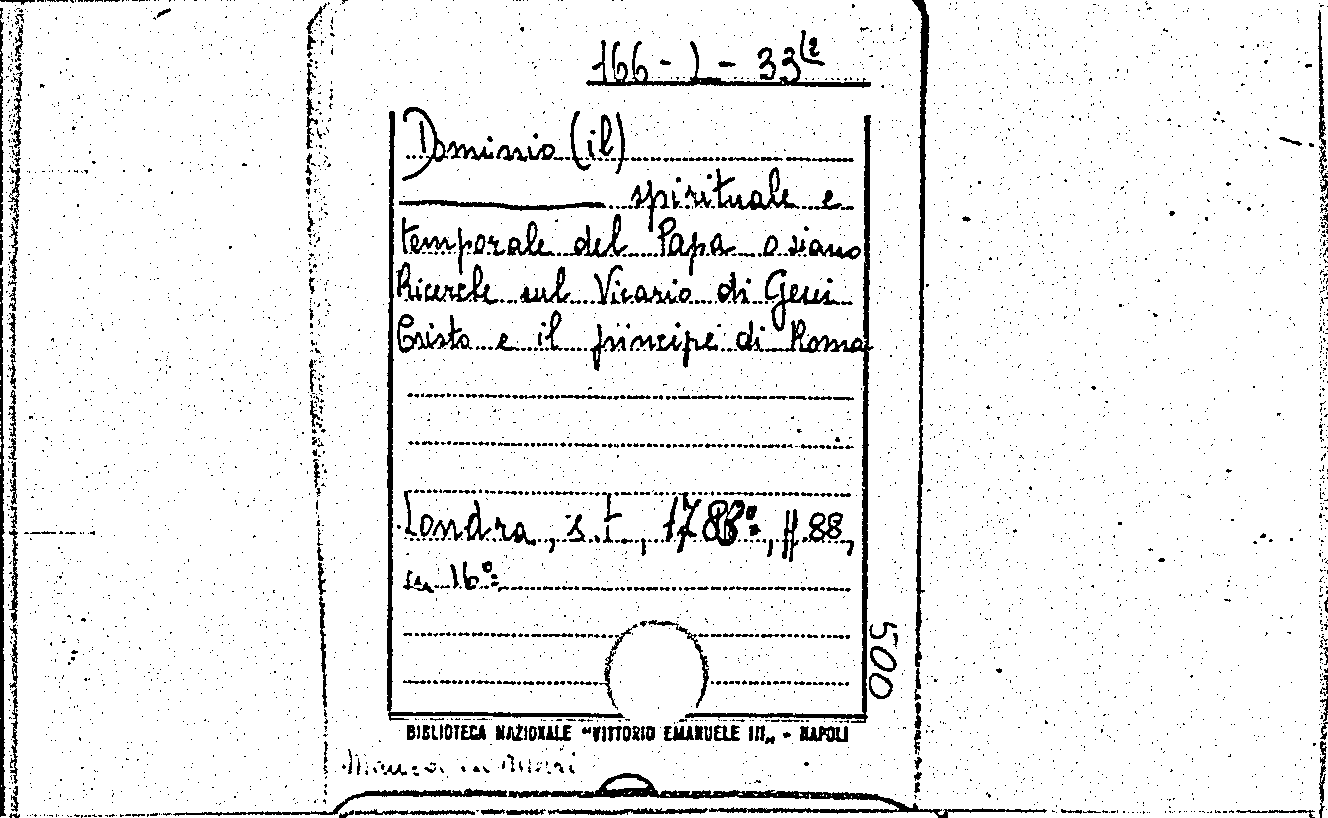 166 - J - 33(2
Dominio (il)
spirituale e
temporale del Papa o siano
Ricerche sul Vicario di Gesù
Cristo e il principe di Roma
Londra, s.t., 1783°:, ff. 88,
in 16°:
500
BIBLIOTECA NAZIONALE "VITTORIO EMANUELE III„ - NAPOLI